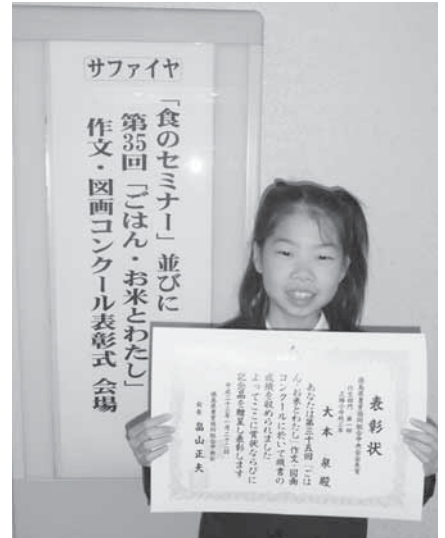 サファイヤ
「食のセミナー」並びに
第35回「ごはん・お米とわたし」
作文・図画コンクール表彰式 会場
表彰状
徳島県農業協同組合中央会会長賞
作文部門 第一部
大本 泉殿
あなたは第三十五回「ごは
ん・お米とわたし」作文・図画
コンクールに於いて頭書の
成績を収められました
よってここに賞状ならびに
記念品を贈呈し表彰します
会長 畠山正夫